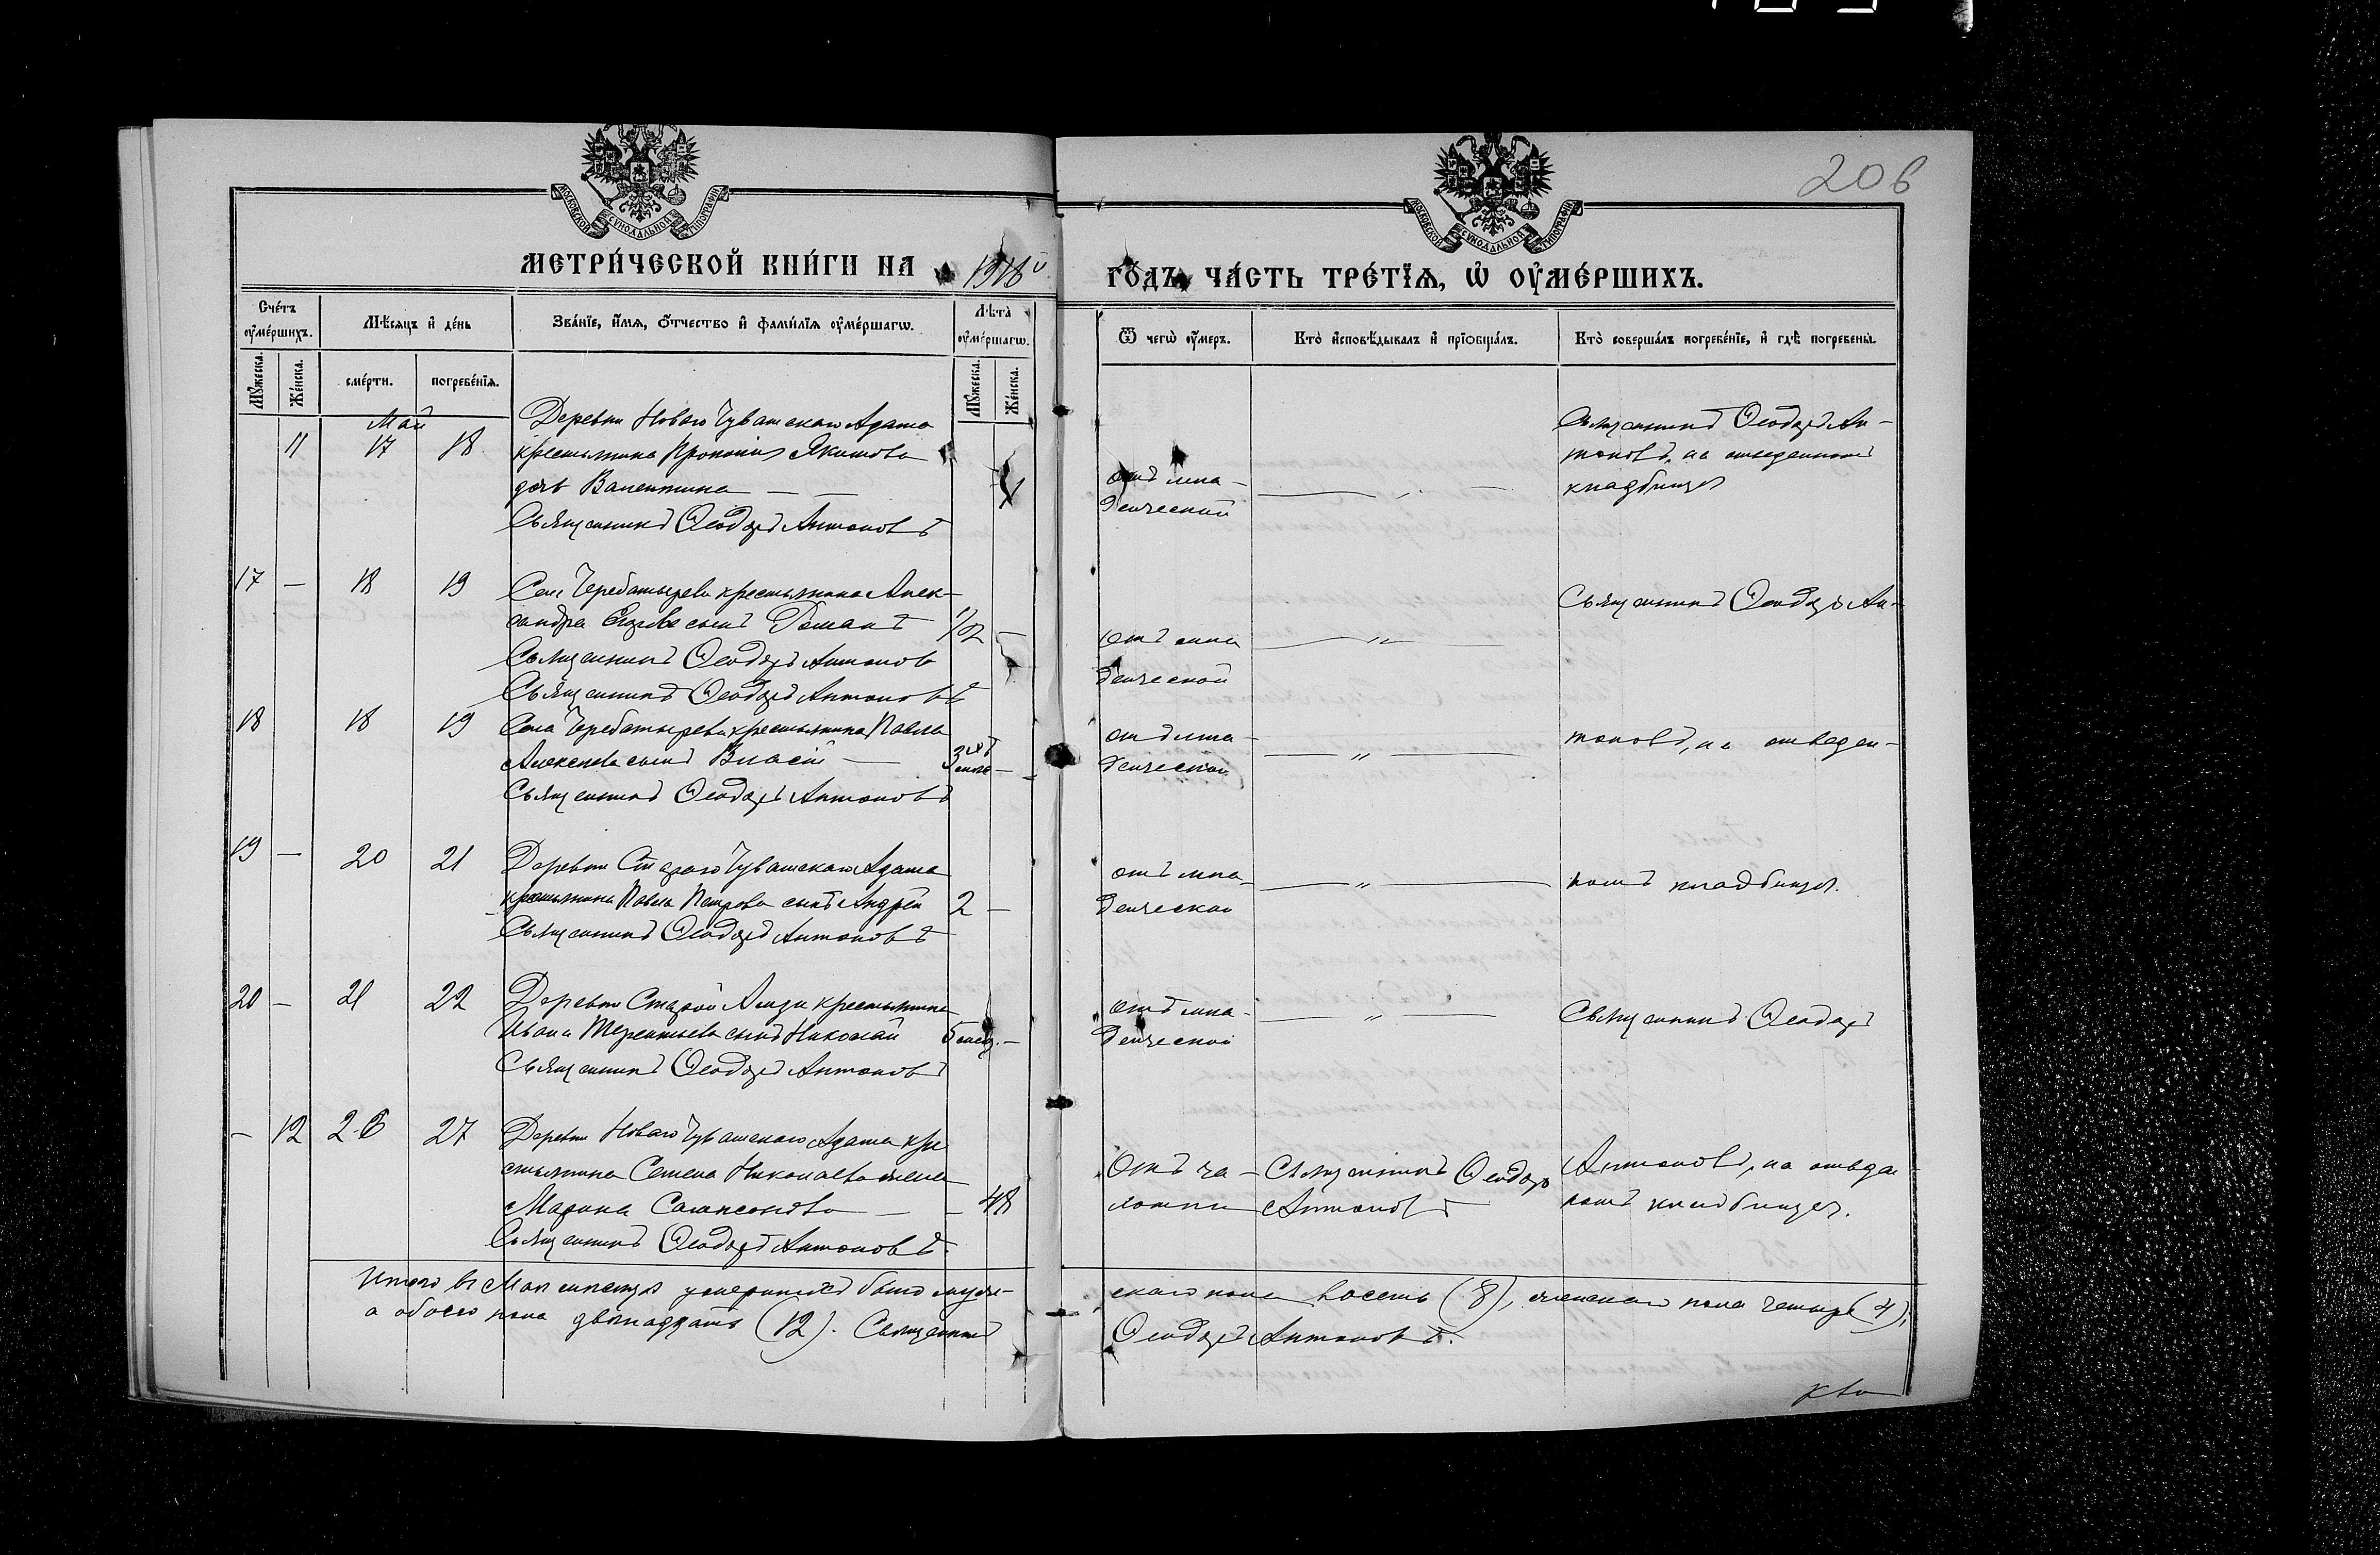 206
МОСКОВСКОЙ СѴНОДАЛЬНОЙ ТИПОГРАФІИ
МОСКОВСКОЙ СѴНОДАЛЬНОЙ ТИПОГРАФІИ
МЕТРИ́ЧЕСКОЙ КНИ́ГИ НА 1918й
ГО́ДЪ, ЧА́СТЬ ТРЕ́ТІѦ, Ѡ҆ ОУ҆МЕ́РШИХЪ.
Сче́тъ оу҆ме́ршихъ.
Мѣ́сяцъ и҆ де́нь
Зва́нїе, и҆́мя, ѻ҆́тчество и҆ фами́лїя оу҆ме́ршагѡ.
Лѣта̀ оу҆ме́ршагѡ.
Ѿ чегѡ̀ оу҆́меръ.
Кто̀ и҆сповѣ́дывалъ и҆ прїѻбща́лъ.
Кто̀ соверша́лъ погребе́нїе, и҆ гдѣ̀ погребены̀.
Мꙋ́жеска.
Же́нска.
сме́рти.
погребе́нїя.
Мꙋ́жеска.
Же́нска.
Май
11 17 18 Деревни Новаго Чувашскаго Адама
крестьянина Прокопія Якимова
дочь Валентина — —
Священникъ Ѳеодоръ Антоновъ
отъ мла-
денческой
Священникъ Ѳеодоръ Ан-
тоновъ, на отведенномъ
кладбищѣ
17 — 18 19 Села Черебатырева крестьянина Алек-
сандра сынъ Романъ 1/2 —
Священникъ Ѳеодоръ Антоновъ
Священникъ Ѳеодоръ Антоновъ
отъ мла
денческой
— „ —
Священникъ Ѳеодоръ Ан-
18 18 19 Села Черебатырева крестьянина Павла
Алексѣева сынъ Власій —
Священникъ Ѳеодоръ Антоновъ
отъ мла-
денческой
— „ —
тоновъ, на отведен-
19 — 20 21 Деревни Стараго Чувашскаго Адама
крестьянина Павла Петрова сынъ Андрей 2 —
Священникъ Ѳеодоръ Антоновъ
отъ мла-
денческой
— „ —
номъ кладбищѣ.
20 — 21 22 Деревни Старой крестьянина
Ивана Терентьева сынъ Николай —
Священникъ Ѳеодоръ Антоновъ
отъ мла-
денческой
— „ —
Священникъ Ѳеодоръ
— 12 26 27 Деревни Новаго Чувашскаго Адама кре
стьянина Семена Николаева жена
Марина Сампсонова — — 48
Священникъ Ѳеодоръ Антоновъ.
Отъ ча-
хотки
Священникъ Ѳеодоръ
Антоновъ
Антоновъ, на отведен
номъ кладбищѣ.
Итого въ Маѣ мѣсяцѣ умершихъ было муже-
скаго пола восемь (8), женскаго пола четыре (4),
а обоего пола двѣнадцать (12). Священникъ
Ѳеодоръ Антоновъ.